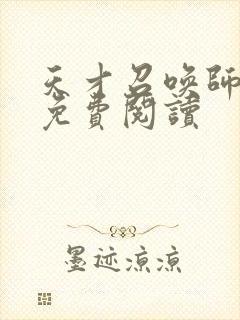 天才召唤師
免費閱讀
墨迹凉凉